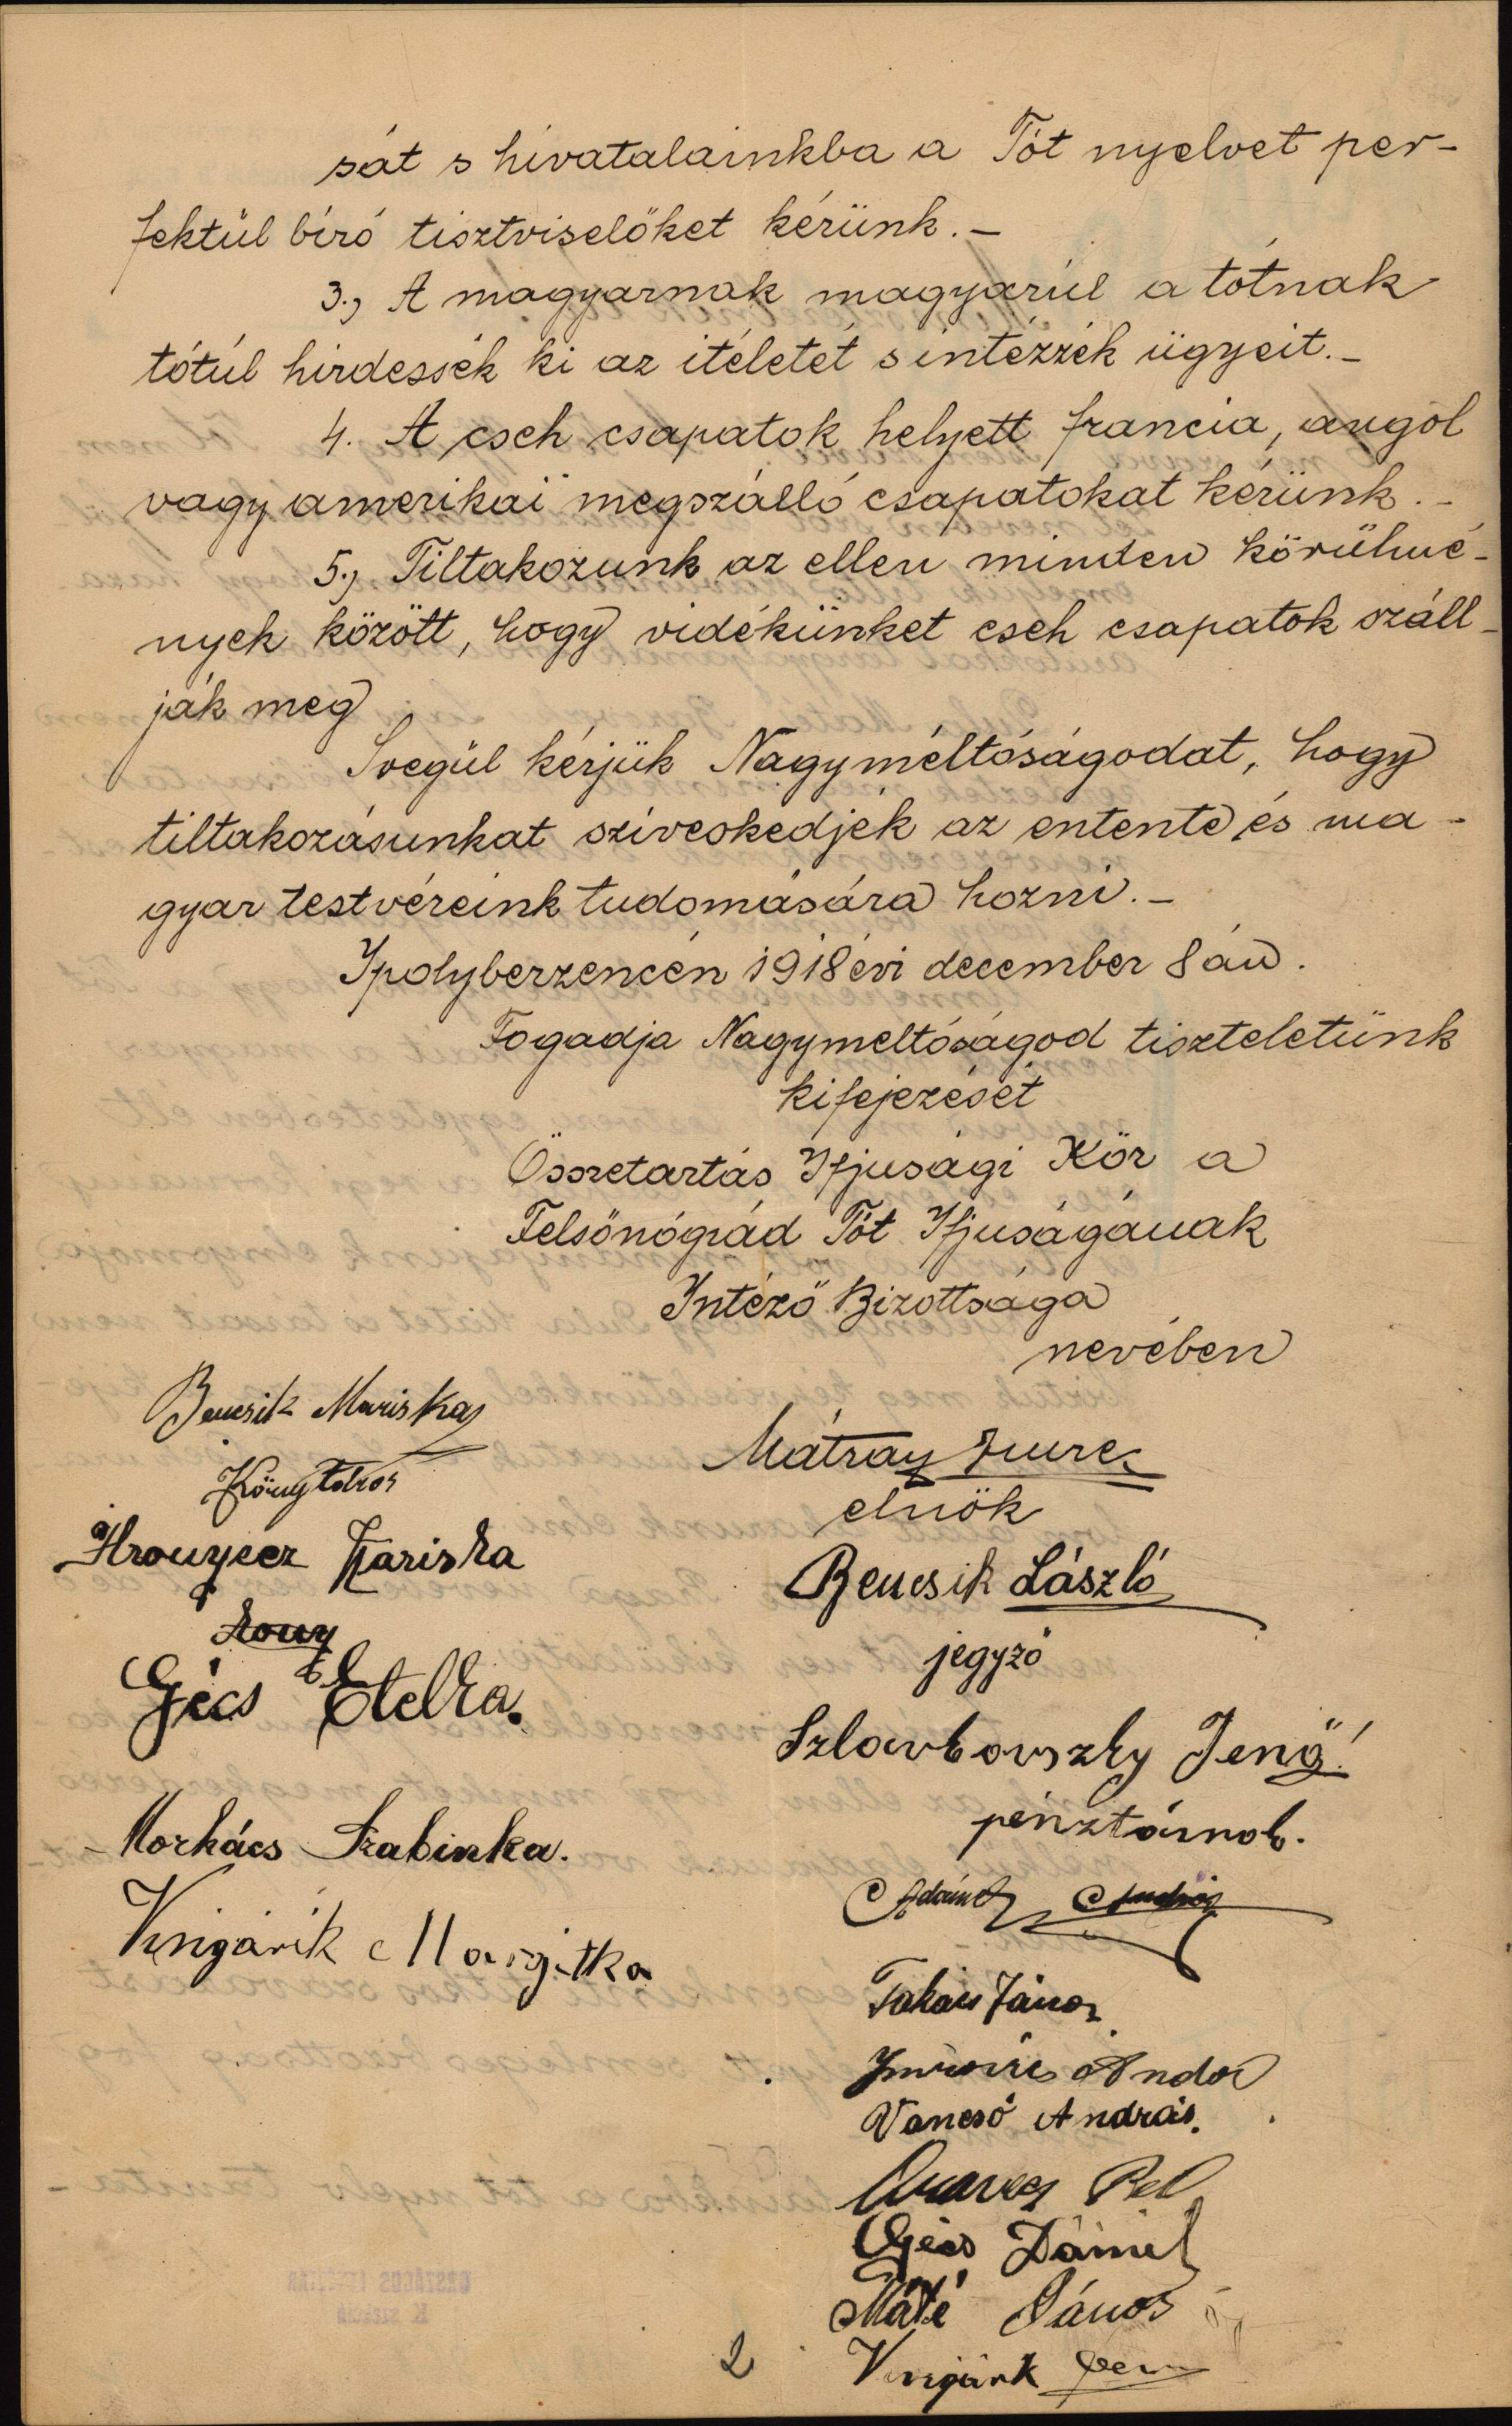 sát s hivatalainkba a Tót nyelvet per-
fektül biró tisztviselőket kérünk. -
3., A magyarnak magyarúl a tótnak
tótúl hirdessék ki az itéletét s intézzék ügyeit. -
4. A cseh csapatok helyett francia, angol
vagy amerikai megszálló csapatokat kérünk. -
5., Tiltakozunk az ellen minden körülmé-
nyek között, hogy vidékünket cseh csapatok száll-
ják meg
Svegül kérjük Nagyméltóságodat, hogy
tiltakozásunkat sziveskedjék az entente és ma-
gyar testvéreink tudomására hozni. -
Ipolyberzencén 1918 évi december 8 án.
Fogadja Nagyméltóságod tiszteletünk
kifejezését
Összetartás Ifjusági Kör a
Felsőnógrád Tót Ifjuságának
Intéző Bizottsága
nevében
Bencsik Mariska
Könytáros
Hronyecz Mariska
Gécs Etelka.
Morhács Szabinka.
Vingárik Margitka
Mátray Imre
elnök
Bencsik László
jegyző
Szlavkovszky Jenő
pénztárnok.
Adám András
Takács János
Andor
Vancsó András.
Pál
Gécs Dániel
Máté János
Vingárik
2